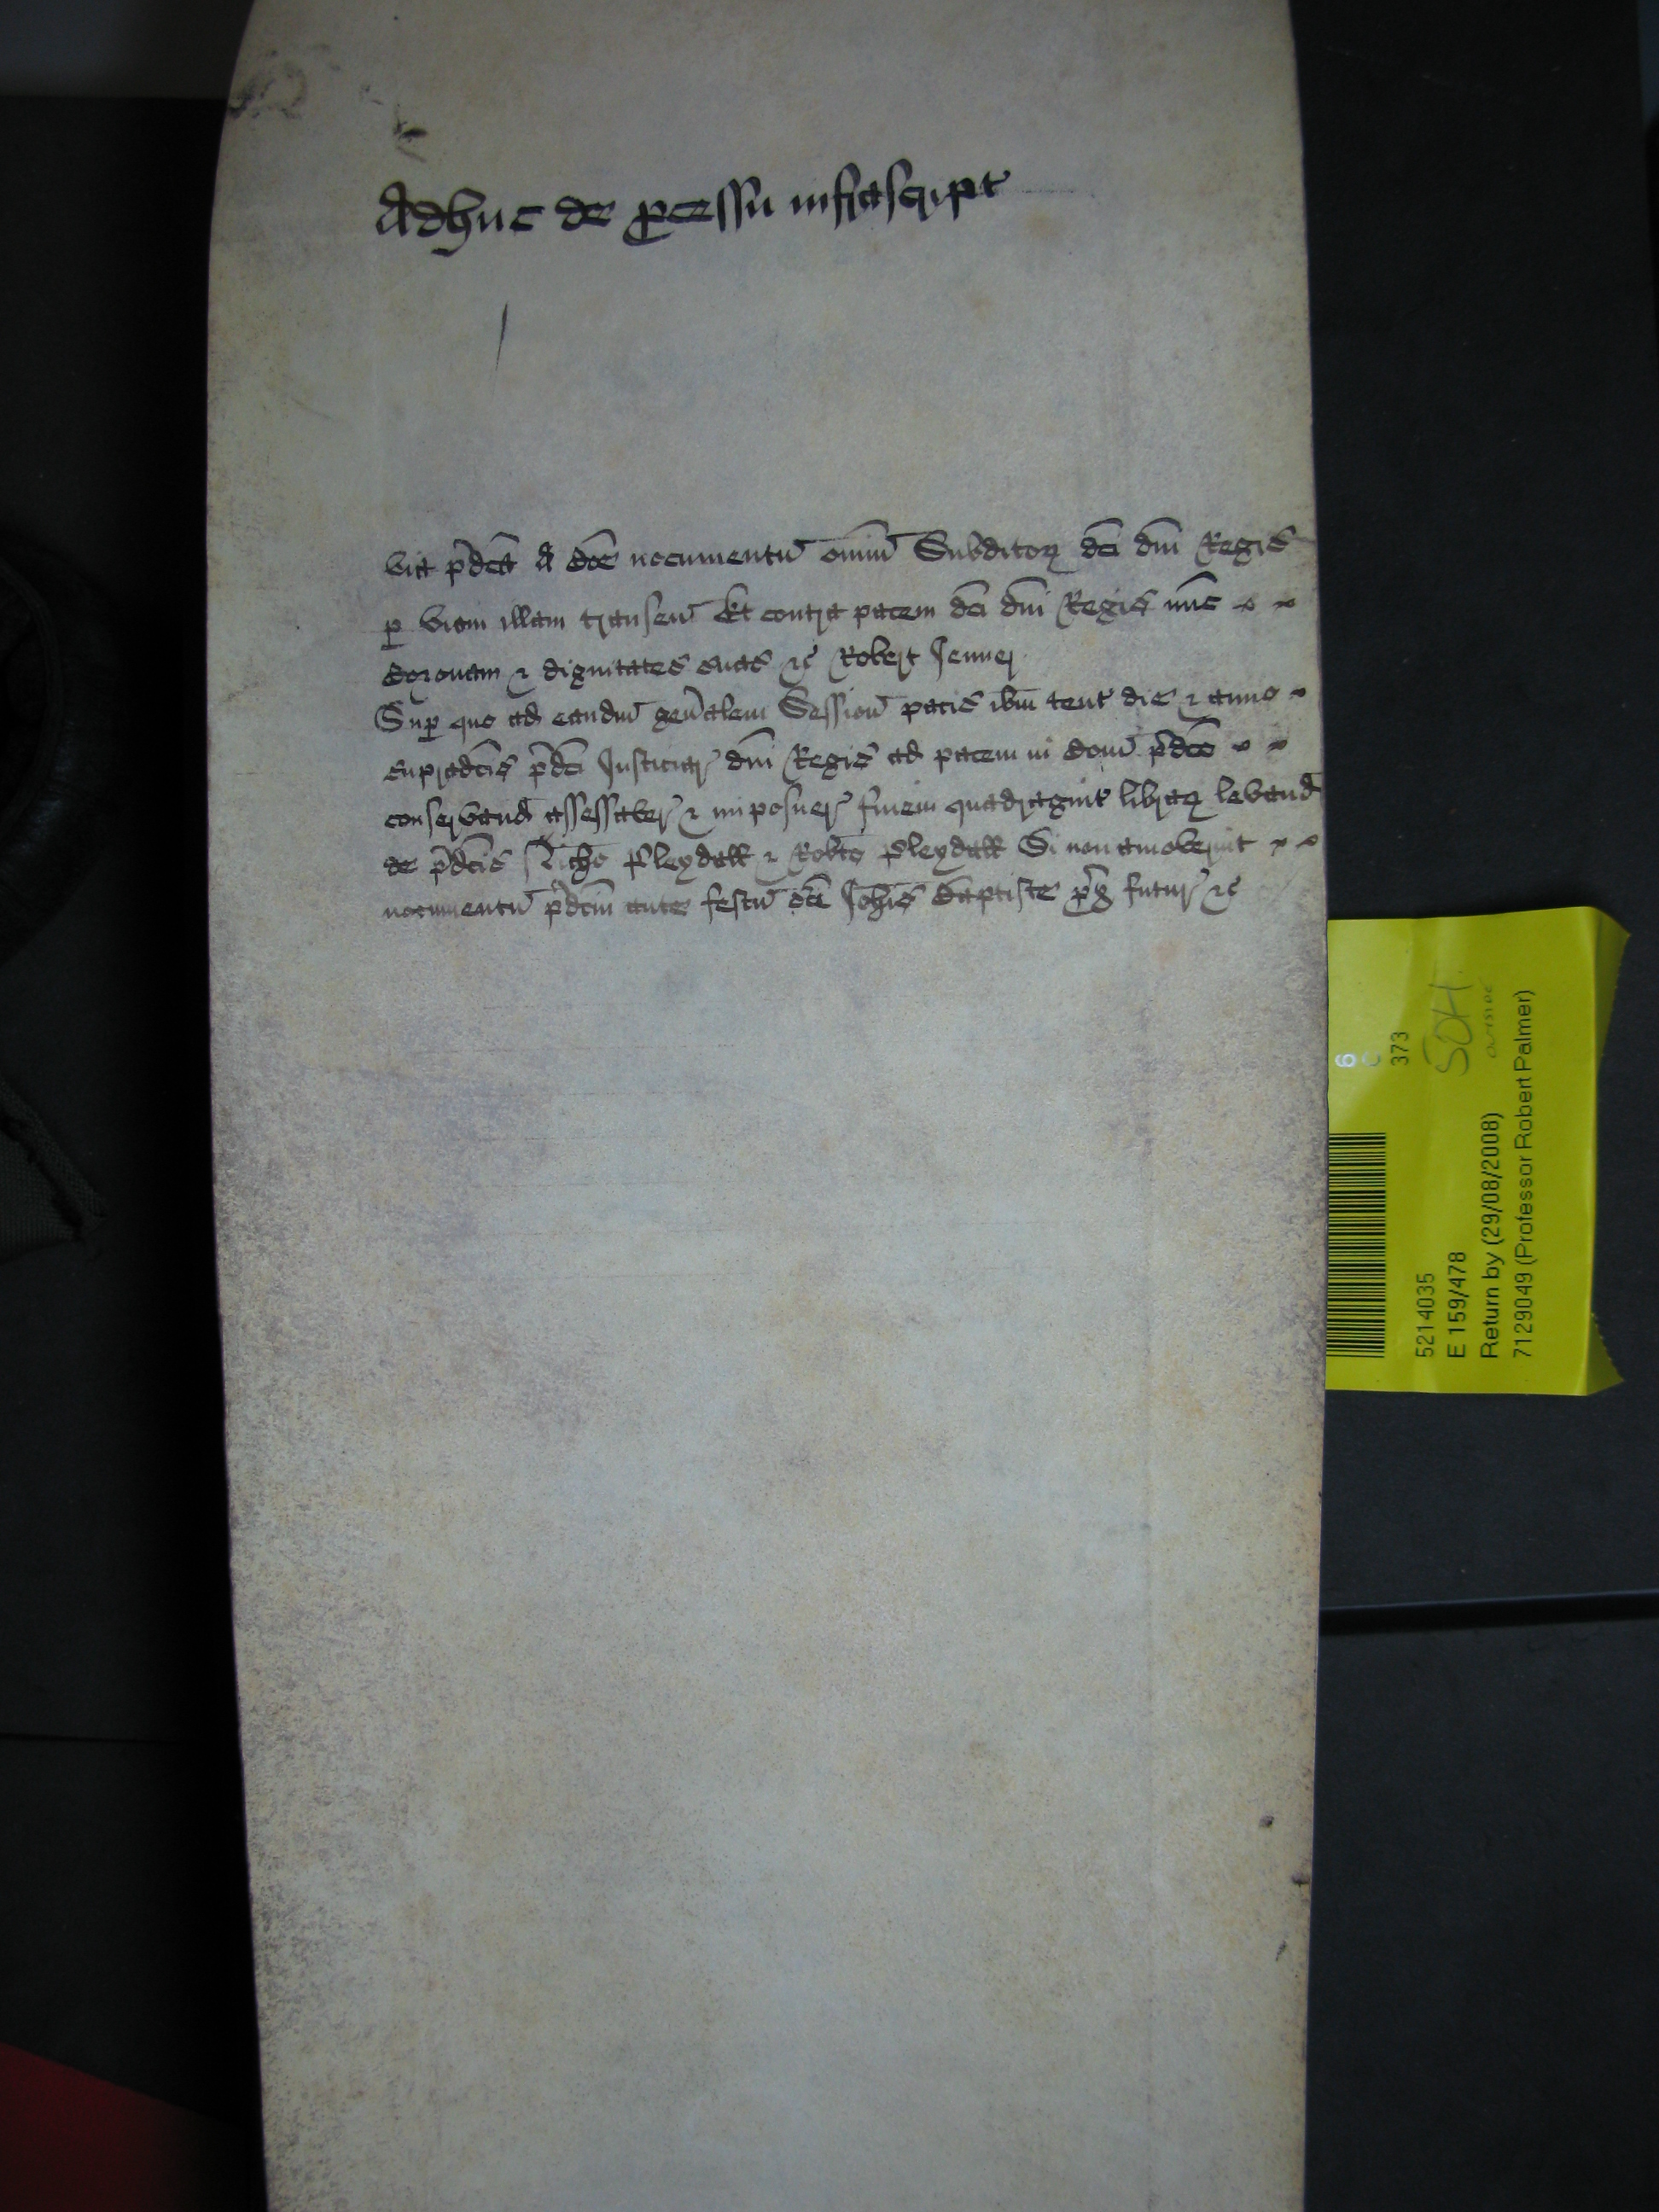 Adhuc de p̱cessu infrascript
via p̄dc̄a A doc̄ nocumentū om̄iū Subditoꝝ dc̄i dn̄i Regis
ꝑ viam illam transeū Et contra pacem dc̄i dn̄i Regis nūc
Coronam ⁊ dignitates suas ⁊c̄ Robert Jenner
Suꝑ quo ad eandm̄ gen̄alem Session̄ pacis ib̄m tent die ⁊ anno
supradc̄is p̄dc̄i Justiciar̄ dn̄i Regis ad pacem in Com̄ p̄dc̄o
conservand̄ assessaver̄ ⁊ imposuer̄ finem quadragint libraꝝ levand̄
de p̄dc̄is Nicho Pleydall ⁊ Robto Pleydall Si non amoverint
nocumentū p̄dc̄m ante festū sc̄i Joh̄is Baptiste p̄x̄ futur̄ ⁊c̄
6
C
373
SOH
5214035
E 159/478
Return by (29/08/2008)
7129049 (Professor Robert Palmer)